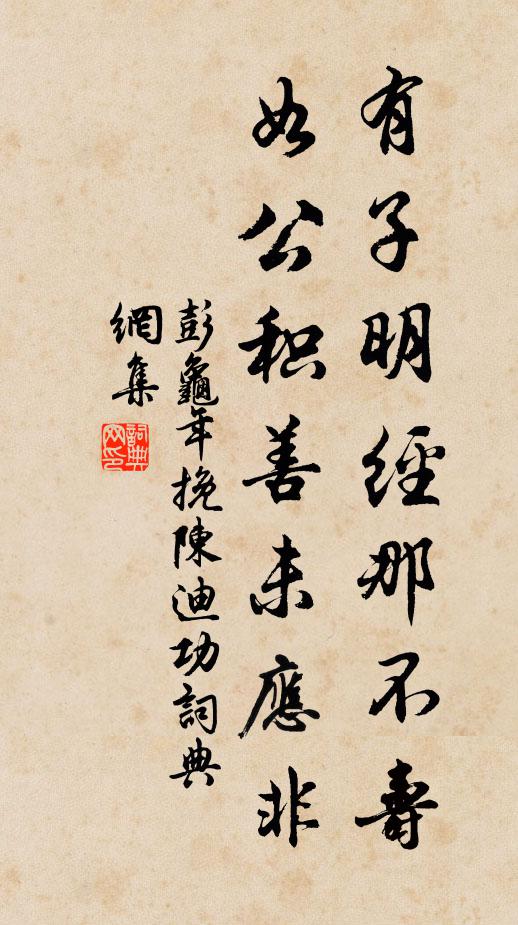 有子明經那不壽
如公积善未應非
彭龜年挽陳迪功詞典
網集
詞典網印